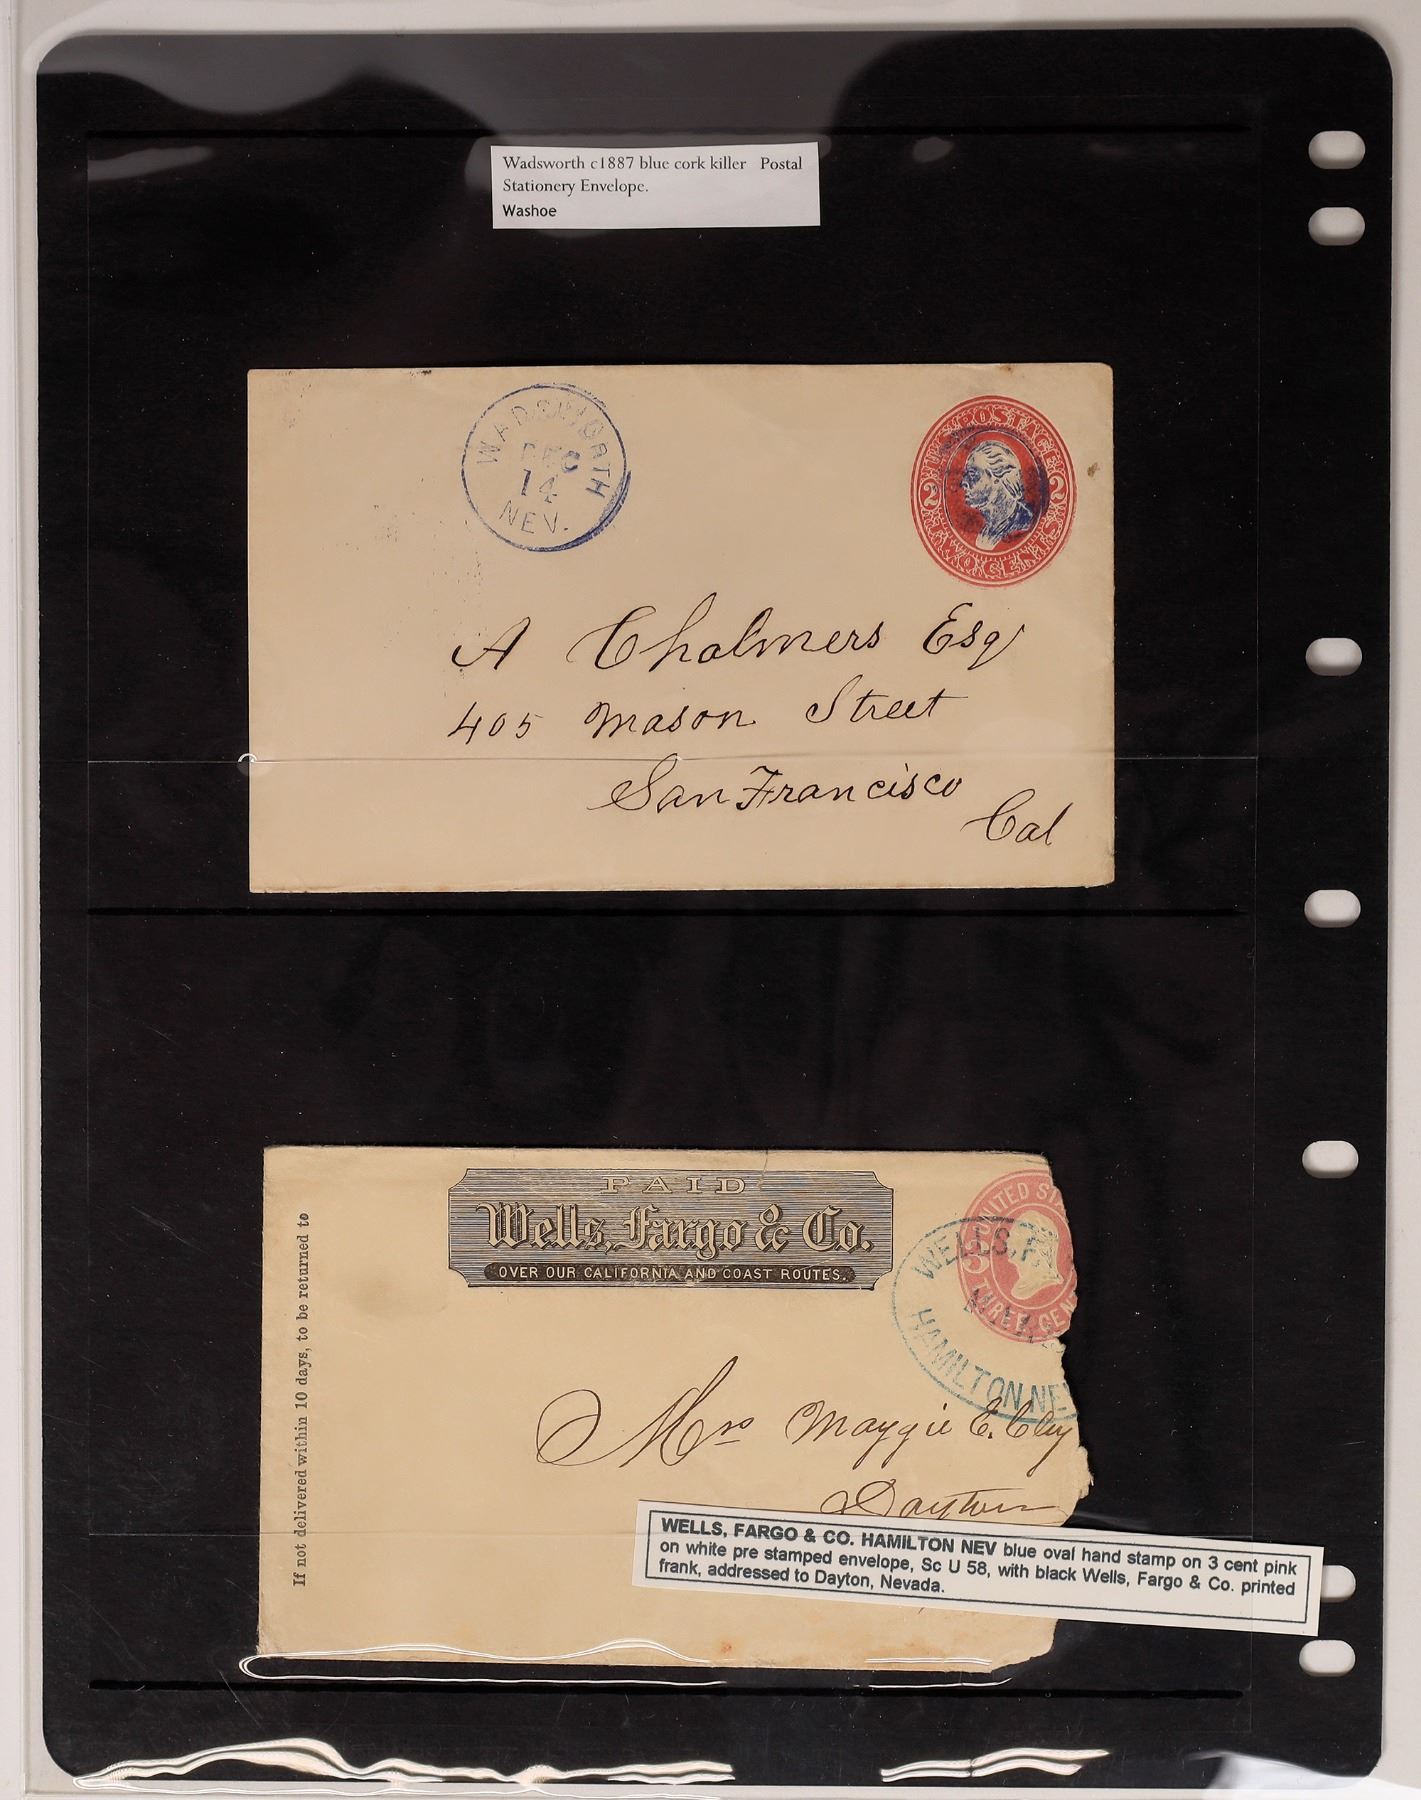 Wadsworth c1887 blue cork killer Postal
Stationery Envelope.
Washoe
WADSWORTH
DEC
14
NEV.
U.S. POSTAGE
2 2
TWO CENTS
A Chalmers Esq
405 Mason Street
San Francisco
Cal
If not delivered within 10 days, to be returned to
PAID
Wells, Fargo & Co.
OVER OUR CALIFORNIA AND COAST ROUTES.
UNITED STA
3
THREE CENT
WELLS, F
HAMILTON NEV
Mrs Maggie E. Cluy
Dayton
WELLS, FARGO & CO. HAMILTON NEV blue oval hand stamp on 3 cent pink
on white pre stamped envelope, Sc U 58, with black Wells, Fargo & Co. printed
frank, addressed to Dayton, Nevada.